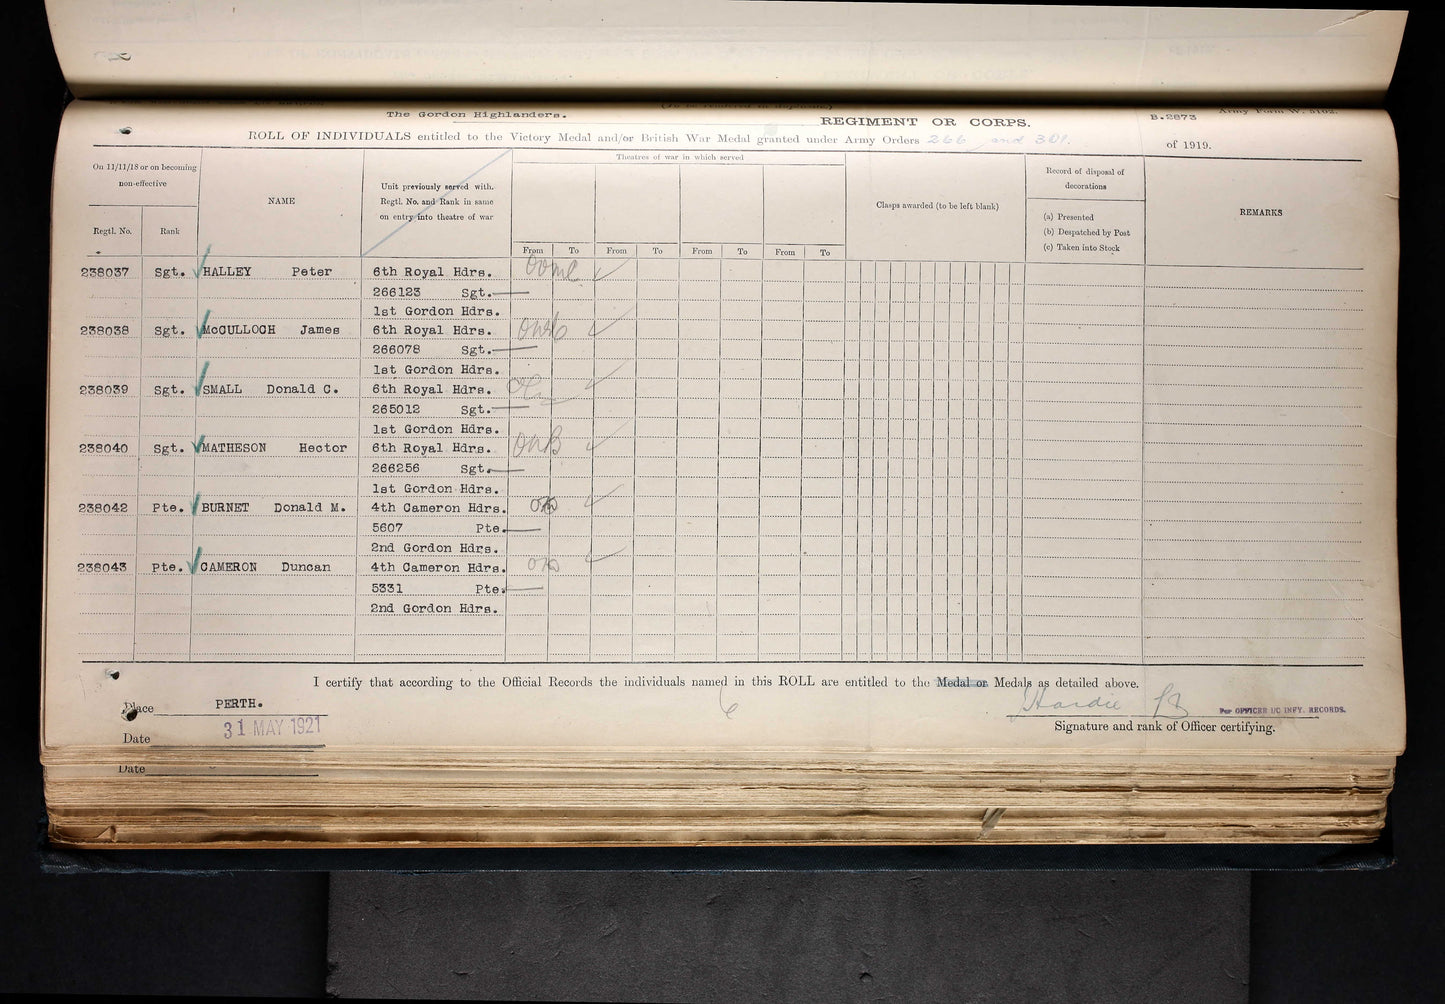 The Gordon Highlanders. REGIMENT OR CORPS. B.2873
ROLL OF INDIVIDUALS entitled to the Victory Medal and/or British War Medal granted under Army Orders 266 and 301. of 1919.
On 11/11/18 or on becoming non-effective
Regtl. No.
Rank
NAME
Unit previously served with.
Regtl. No. and Rank in same
on entry into theatre of war
Theatres of war in which served
From To From To From To From To
Clasps awarded (to be left blank)
Record of disposal of
decorations
(a) Presented
(b) Despatched by Post
(c) Taken into Stock
REMARKS
238037 Sgt. HALLEY Peter 6th Royal Hdrs.
266123 Sgt.
1st Gordon Hdrs.
238038 Sgt. McCULLOCH James 6th Royal Hdrs.
266078 Sgt.
1st Gordon Hdrs.
238039 Sgt. SMALL Donald C. 6th Royal Hdrs.
265012 Sgt.
1st Gordon Hdrs.
238040 Sgt. MATHESON Hector 6th Royal Hdrs.
266256 Sgt.
1st Gordon Hdrs.
238042 Pte. BURNET Donald M. 4th Cameron Hdrs.
5607 Pte.
2nd Gordon Hdrs.
238043 Pte. CAMERON Duncan 4th Cameron Hdrs.
5331 Pte.
2nd Gordon Hdrs.
I certify that according to the Official Records the individuals named in this ROLL are entitled to the Medal or Medals as detailed above.
Place PERTH.
6
Hardie
For OFFICER I/C INFY. RECORDS.
Date 31 MAY 1921
Signature and rank of Officer certifying.
Date